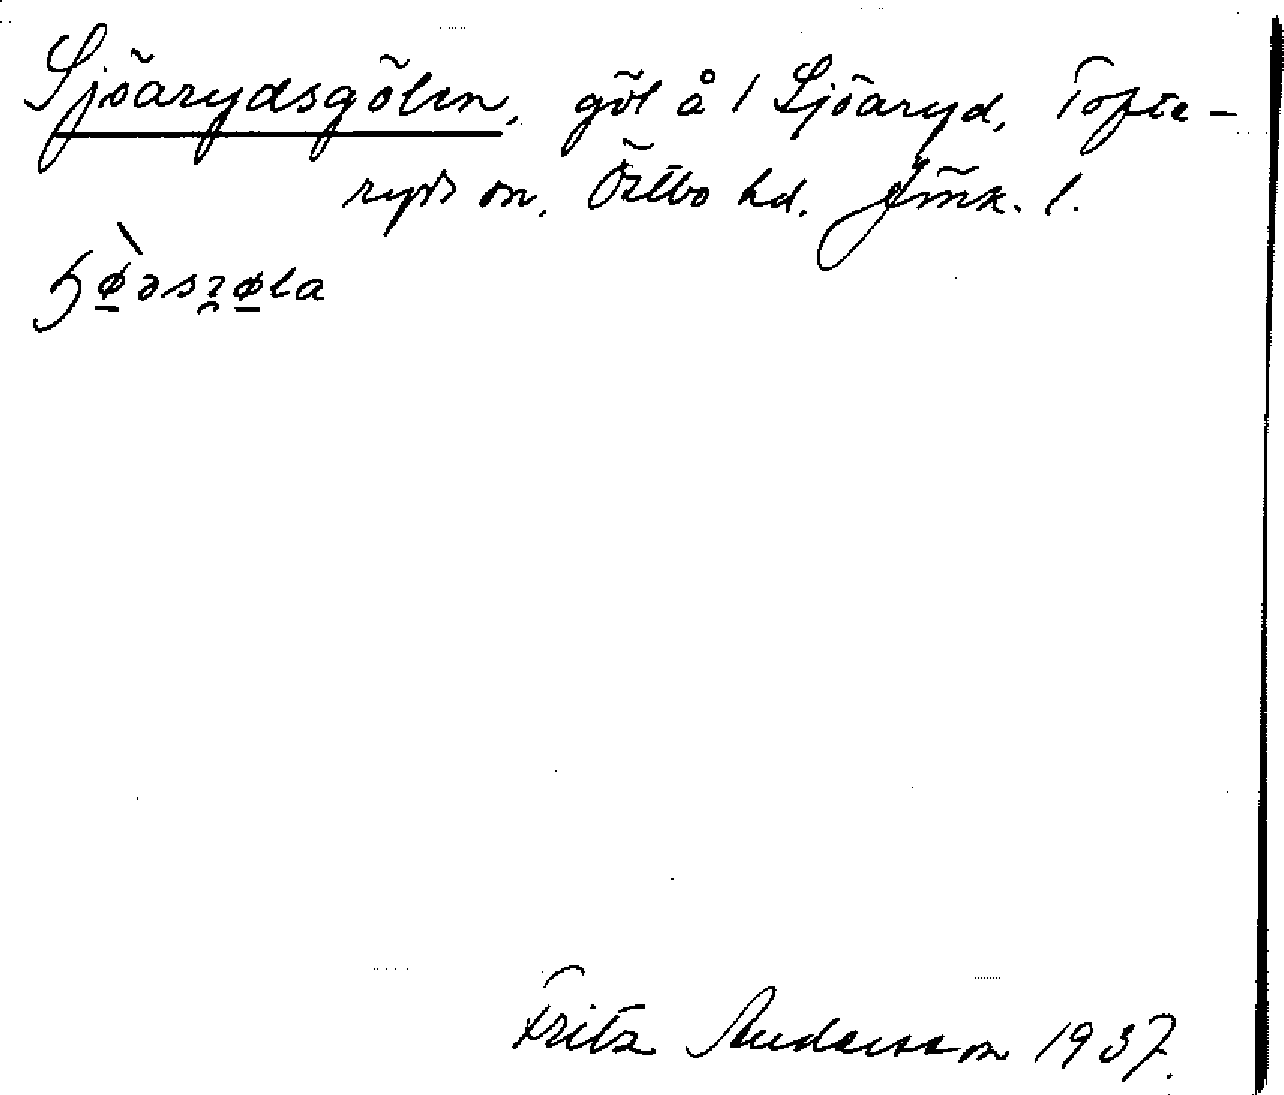 Sjöarydsgölen, göl å 1 Sjöaryd, Tofte-
ryds sn, Östbo hd. Jönk. l.
Fritz Andersson 1937.